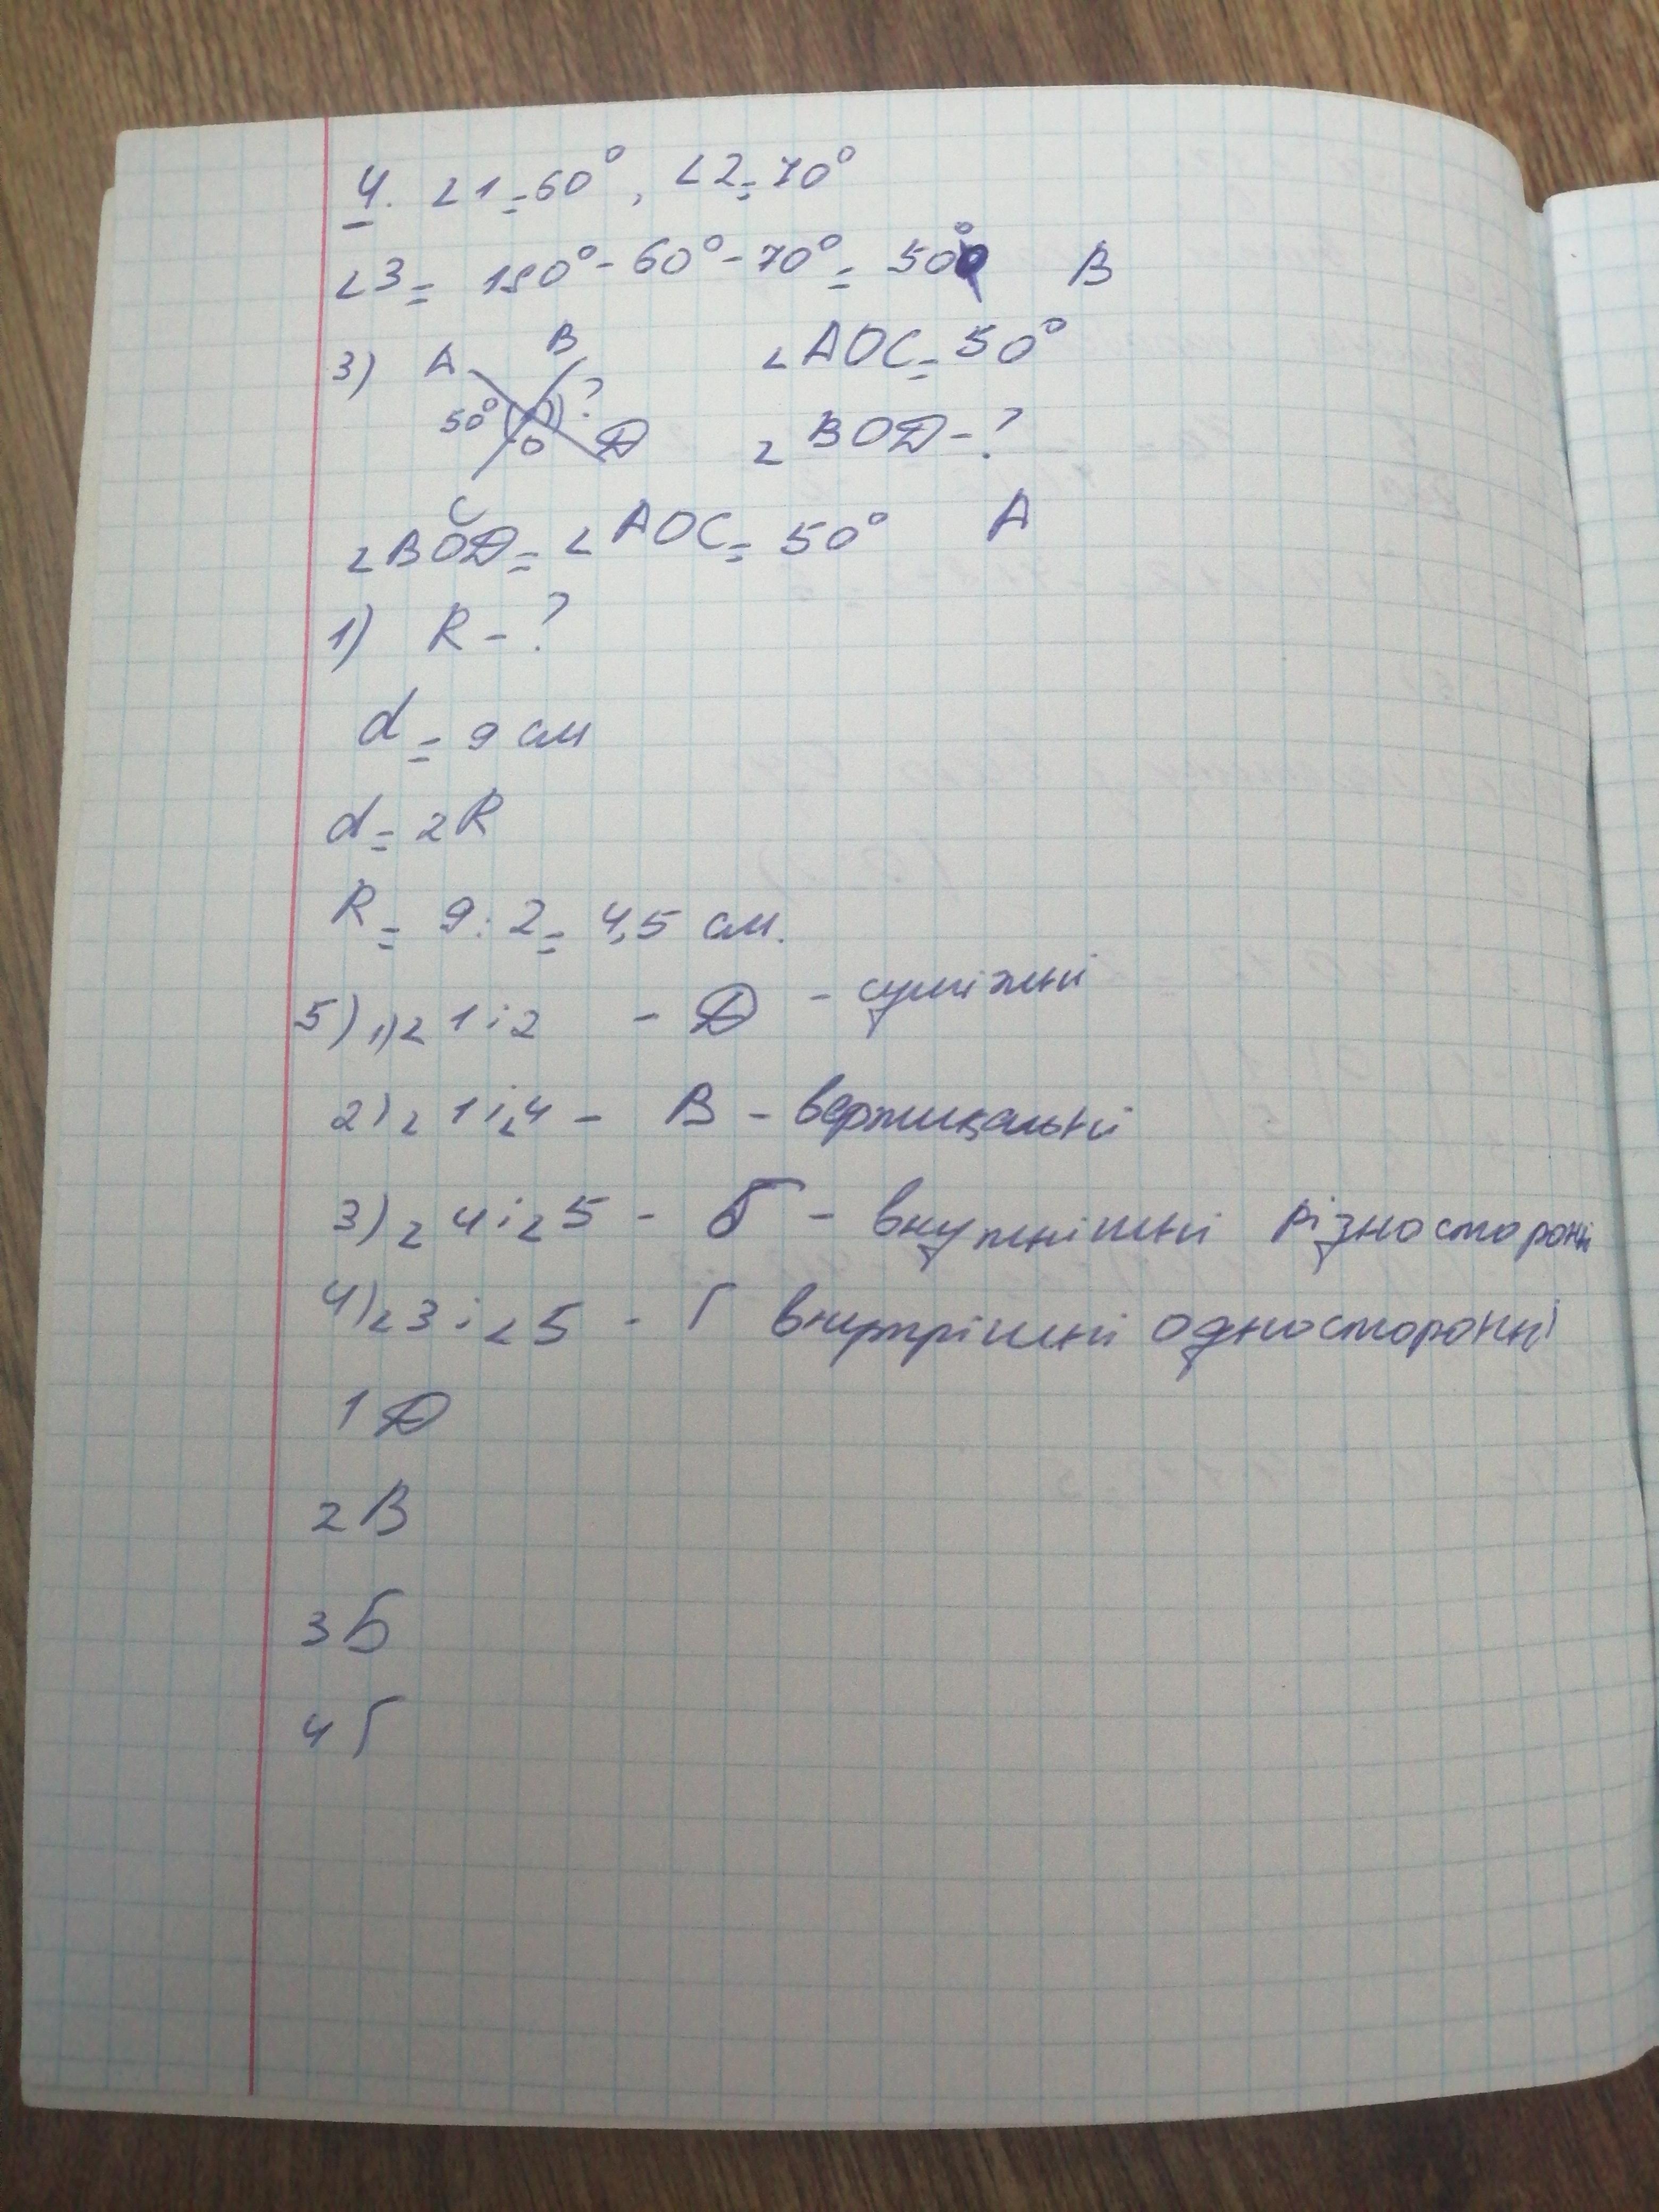 4. ∠1=60°, ∠2=70°
∠3= 180°-60°-70°= 50° В
3) А В ∠АОС=50°
50° ? О D ∠ВОD-?
С
∠ВОD=∠АОС= 50° А
1) R-?
d= 9 см
d=2R
R= 9:2= 4,5 см.
5) 1)∠1і2 - D - суміжні
2)∠1і∠4 - В - вертикальні
3)∠4і∠5 - Б - внутнішні різносторонні
4)∠3і∠5 - Г внутрішні односторонні
1 D
2 В
3 Б
4 Г